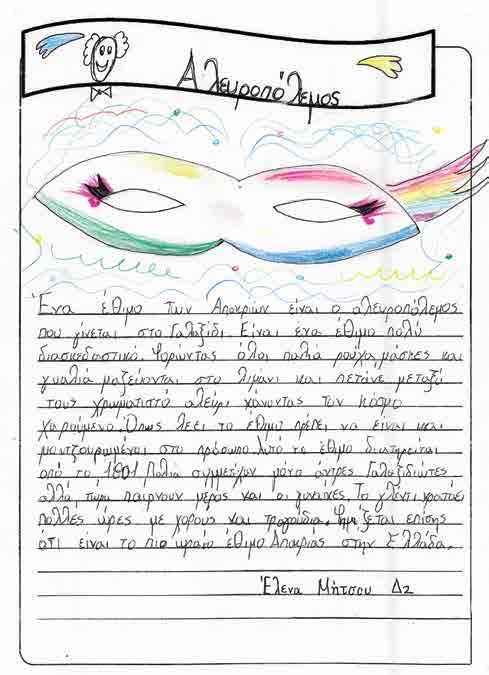 Αλευροπόλεμος
Ένα έθιμο των Αποκριών είναι ο αλευροπόλεμος
που γίνεται στο Γαλαξίδι. Είναι ένα έθιμο πολύ
διασκεδαστικό. Φορώντας όλοι παλιά ρούχα, μάσκες και
γυαλιά μαζεύονται στο λιμάνι και πετάνε μεταξύ
τους χρωματιστό αλεύρι κάνοντας τον κόσμο
χαρούμενο. Όπως λέει το έθιμο πρέπει να είναι και
μουτζουρωμένοι στο πρόσωπο. Αυτό το έθιμο διατηρείται
από το 1801. Παλιά συμμετείχαν μόνο άντρες Γαλαξιδιώτες
αλλά τώρα παίρνουν μέρος και οι γυναίκες. Το γλέντι κρατάει
πολλές ώρες με χορούς και τραγούδια. Φημίζεται επίσης
ότι είναι το πιο ωραίο έθιμο Αποκριάς στην Ελλάδα.
Έλενα Μήτσου Δ2